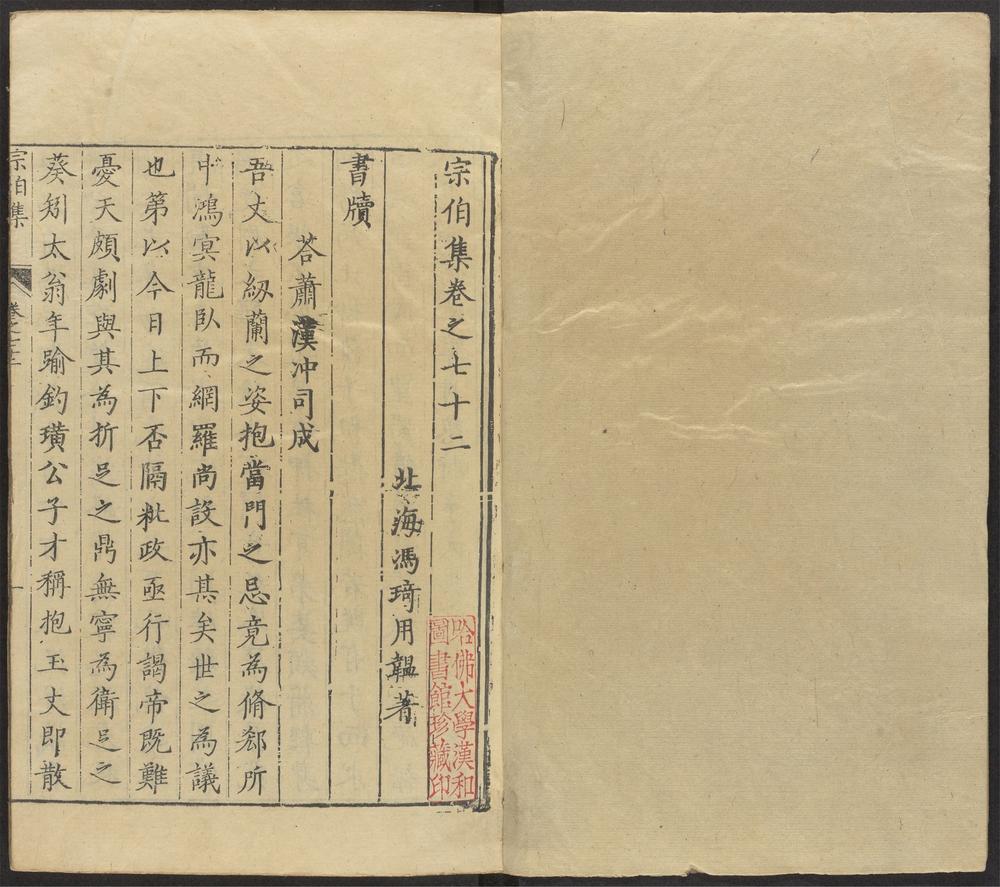 宗伯集卷之七十二
北海馮琦用韞著
書牘
荅蕭漢冲司成
吾丈以紉蘭之姿抱當門之忌竟為脩郄所
中鴻冥龍臥而網羅尚設亦甚矣世之為議
也第以今日上下否隔秕政亟行謁帝既難
憂天頗劇與其為折足之鼎無寧為衛足之
葵矧太翁年踰釣璜公子才稱抱玉丈即散
宗伯集
卷之七十二
一
哈佛大學漢和
圖書館珍藏印